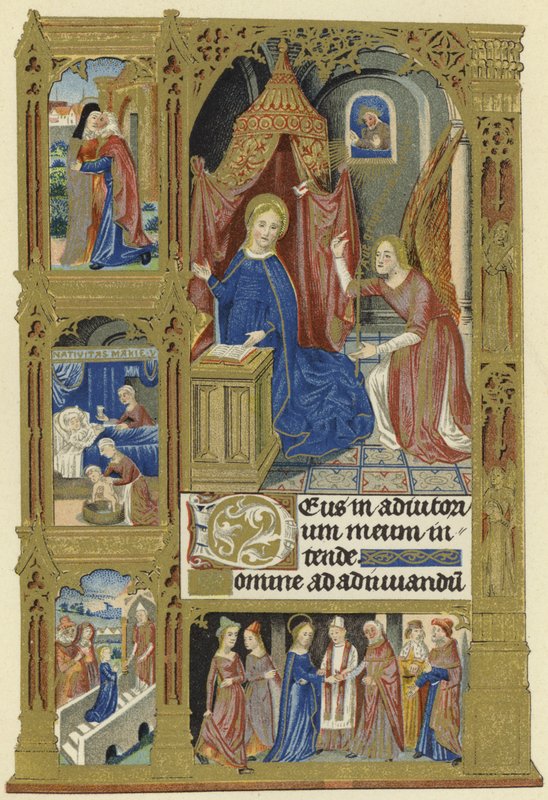 NATIVITAS MARIE V
Deus in adiutori
um meum in〃
tende
omine ad adiuuandū